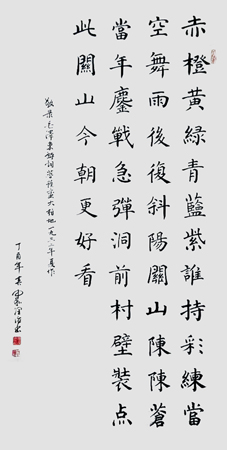 赤橙黃綠青藍紫誰持彩練當
空舞雨後復斜陽關山陳陳蒼
當年鏖戰急彈洞前村壁裝点
此關山今朝更好看
敬录毛澤東詩詞菩薩蠻大柏地一九三三年夏作
丁酉年